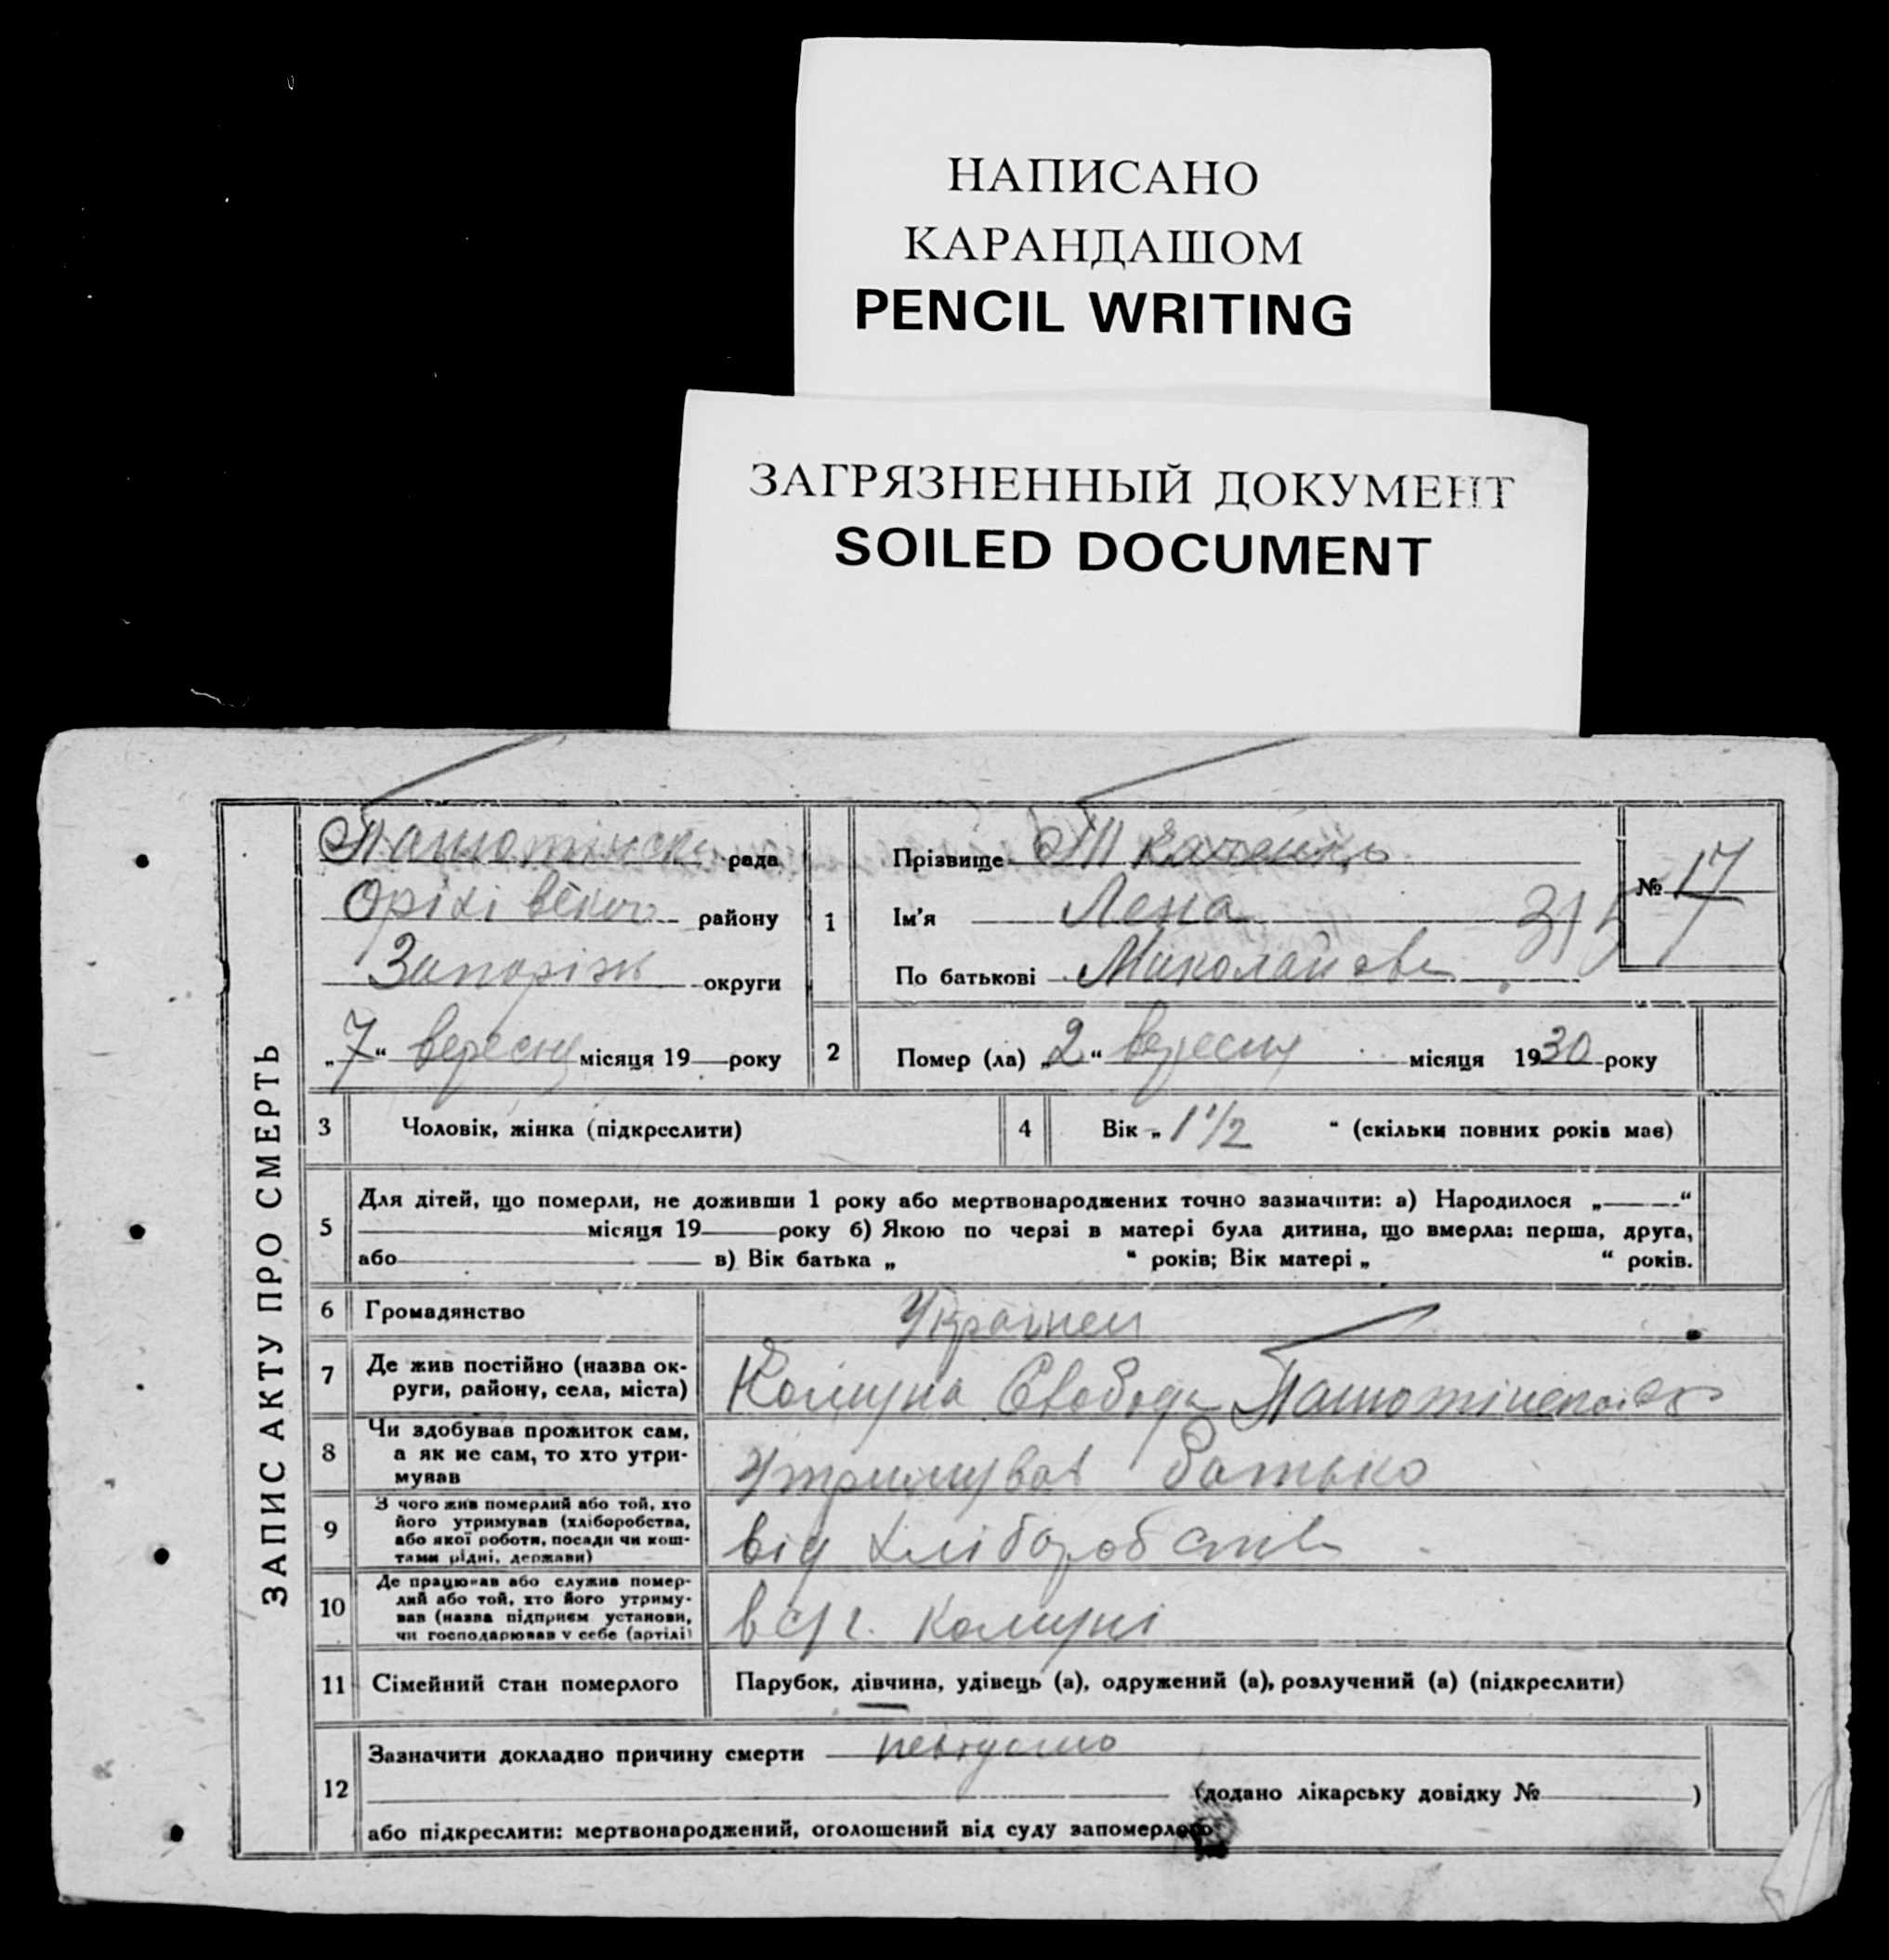 НАПИСАНО
КАРАНДАШОМ
PENCIL WRITING
ЗАГРЯЗНЕННЫЙ ДОКУМЕНТ
SOILED DOCUMENT
ЗАПИС АКТУ ПРО СМЕРТЬ
рада
району
Запоріж округи
„7“ вересня місяця 19 року
1
Прізвище
Ім'я Лена
По батькові Миколаївн
315
№ 17
2
Помер (ла) „2“ вересня місяця 1930 року
3 Чоловік, жінка (підкреслити)
4 Вік „1 1/2“ (скільки повних років має)
5 Для дітей, що померли, не доживши 1 року або мертвонароджених точно зазначити: а) Народилося „ “
місяця 19 року б) Якою по черзі в матері була дитина, що вмерла: перша, друга,
або в) Вік батька „ “ років; Вік матері „ “ років.
6 Громадянство Українец
7 Де жив постійно (назва ок-
руги, району, села, міста) Комуна Свобода
8 Чи здобував прожиток сам,
а як не сам, то хто утри-
мував Утримував батько
9 З чого жив померлий або той, хто
його утримував (хліборобства,
або якої роботи, посади чи кош-
тами рідні, держави) від хліборобства
10 Де працював або служив помер-
лий або той, хто його утриму-
вав (назва підприєм установи,
чи господарював у себе (артілі) в с/г. комуні
11 Сімейний стан померлого Парубок, дівчина, удівець (а), одружений (а), розлучений (а) (підкреслити)
12 Зазначити докладно причину смерти невідомо
(додано лікарську довідку № )
або підкреслити: мертвонароджений, оголошений від суду запомерлого